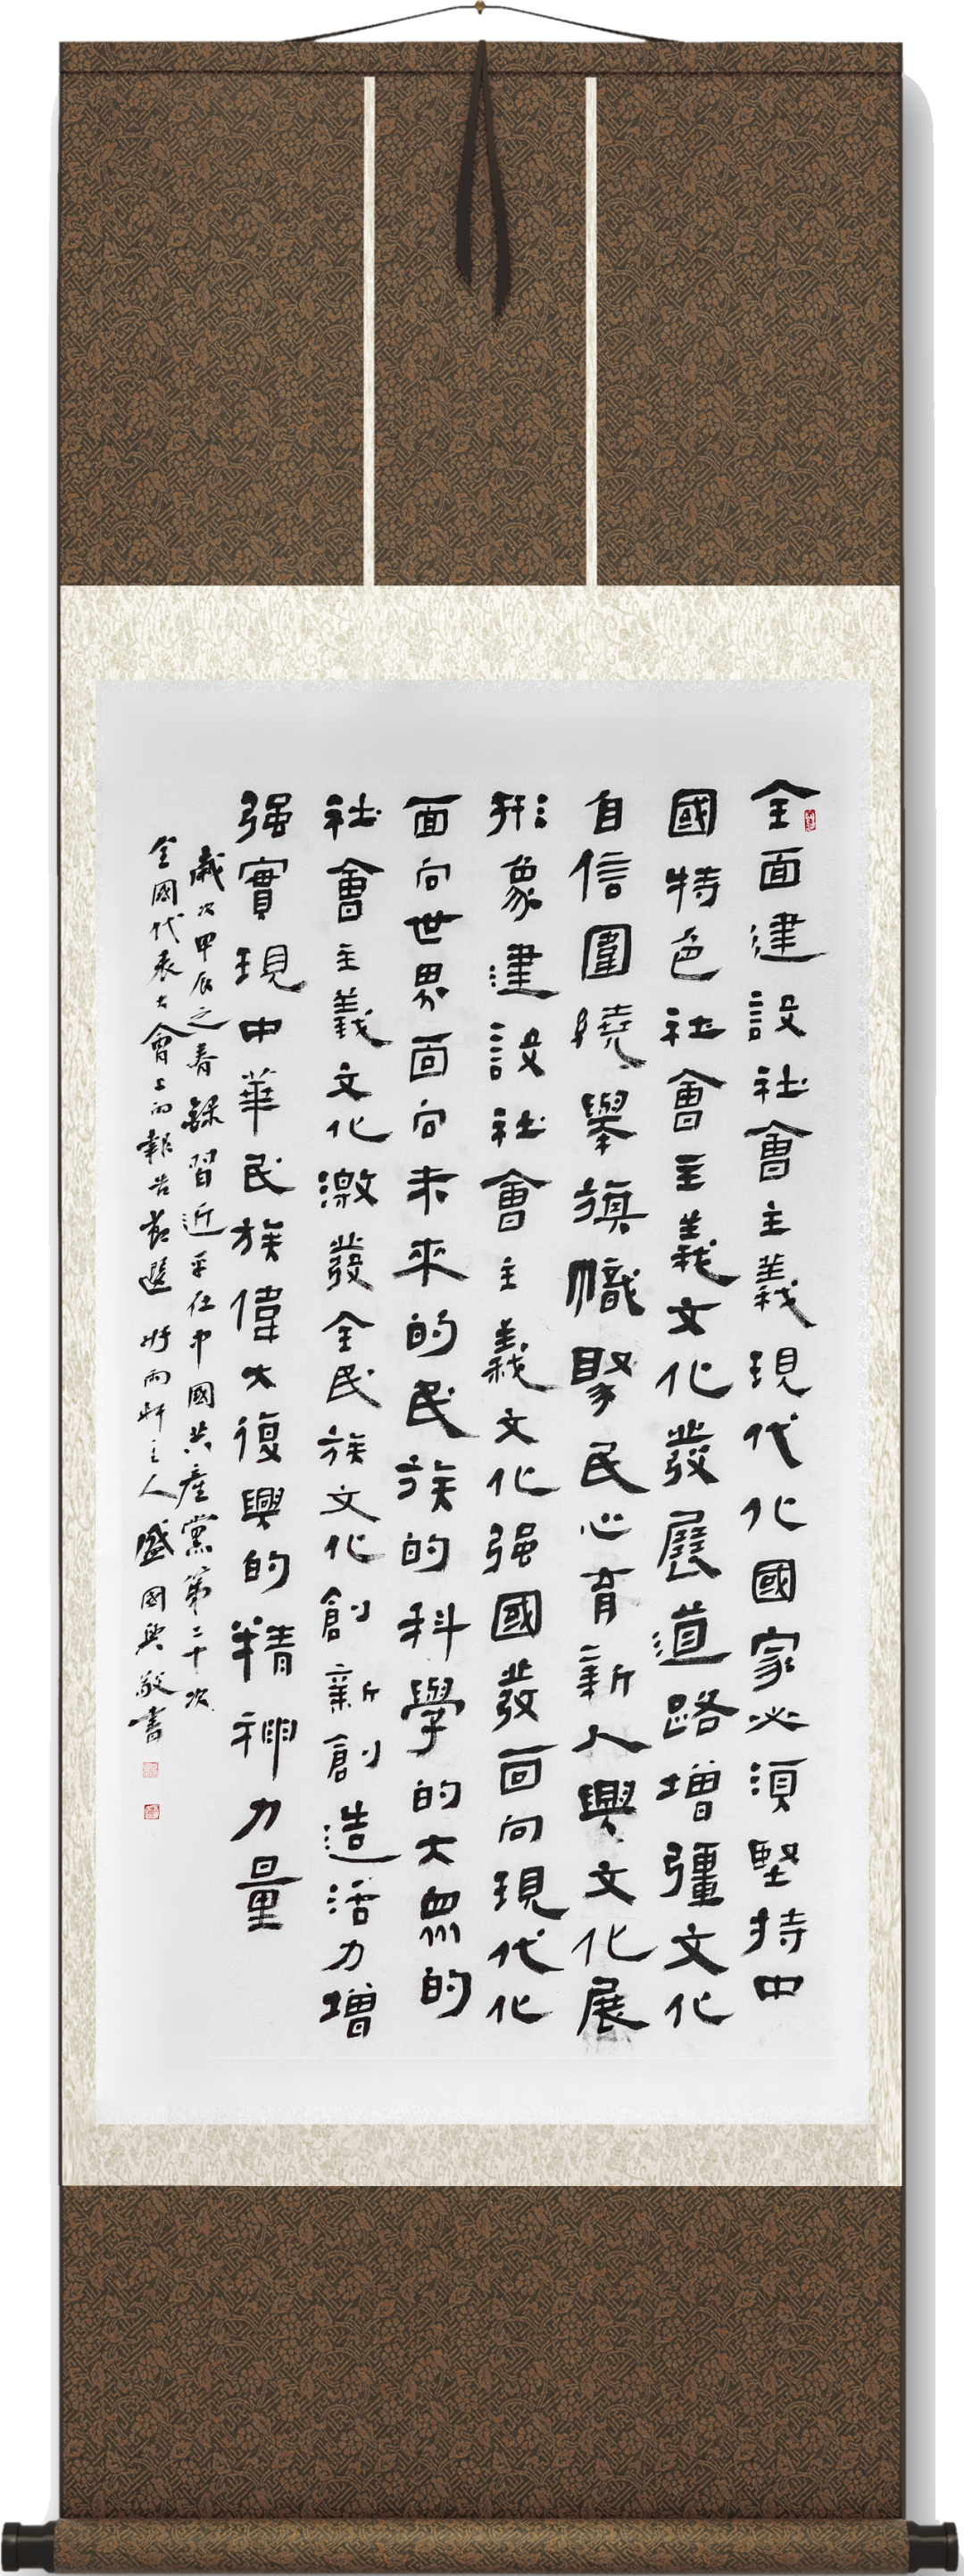 全面建設社會主義現代化國家必須堅持中
國特色社會主義文化發展道路增彊文化
自信圍繞舉旗幟聚民心育新人興文化展
形象建設社會主義文化强國發面向現代化
面向世界面向未來的民族的科學的大眾的
社會主義文化激發全民族文化創新創造活力增
强實現中華民族偉大復興的精神力量
歲次甲辰之春錄習近平在中國共產黨第二十次
全國代表大會上的報告節選 听雨軒主人盛國興敬書